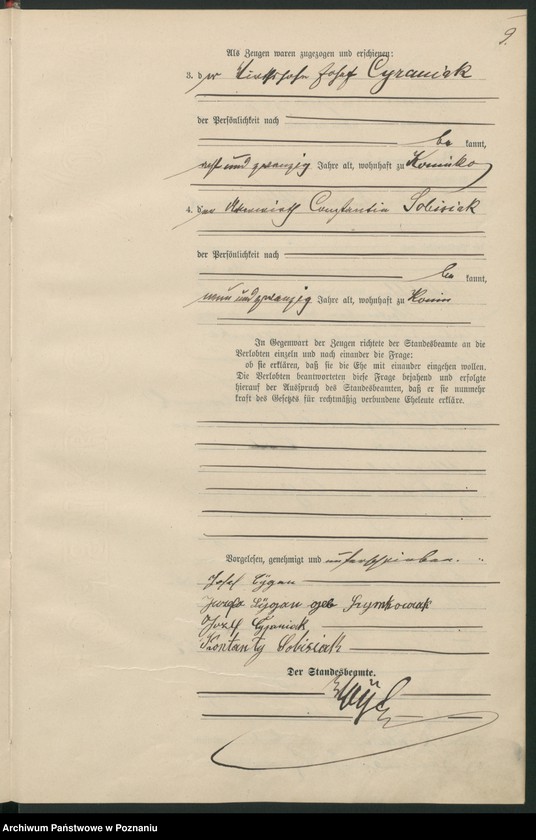 9.
Als Zeugen waren zugezogen und erschienen:
3. der Wirthssohn Josef Cyraniak
der Persönlichkeit nach
be kannt,
acht und zwanzig Jahre alt, wohnhaft zu
4. der Constantin Sobisiak
der Persönlichkeit nach
be kannt,
neun und zwanzig Jahre alt, wohnhaft zu Konin
In Gegenwart der Zeugen richtete der Standesbeamte an die
Verlobten einzeln und nach einander die Frage:
ob sie erklären, daß sie die Ehe mit einander eingehen wollen.
Die Verlobten beantworteten diese Frage bejahend und erfolgte
hierauf der Ausspruch des Standesbeamten, daß er sie nunmehr
kraft des Gesetzes für rechtmäßig verbundene Eheleute erkläre.
Vorgelesen, genehmigt und unterschrieben.
Josef Cygan
Josefa Cygan geb Szymkowiak
Jozef Cyraniak
Kontanty Sobisiak
Der Standesbeamte.
Archiwum Państwowe w Poznaniu